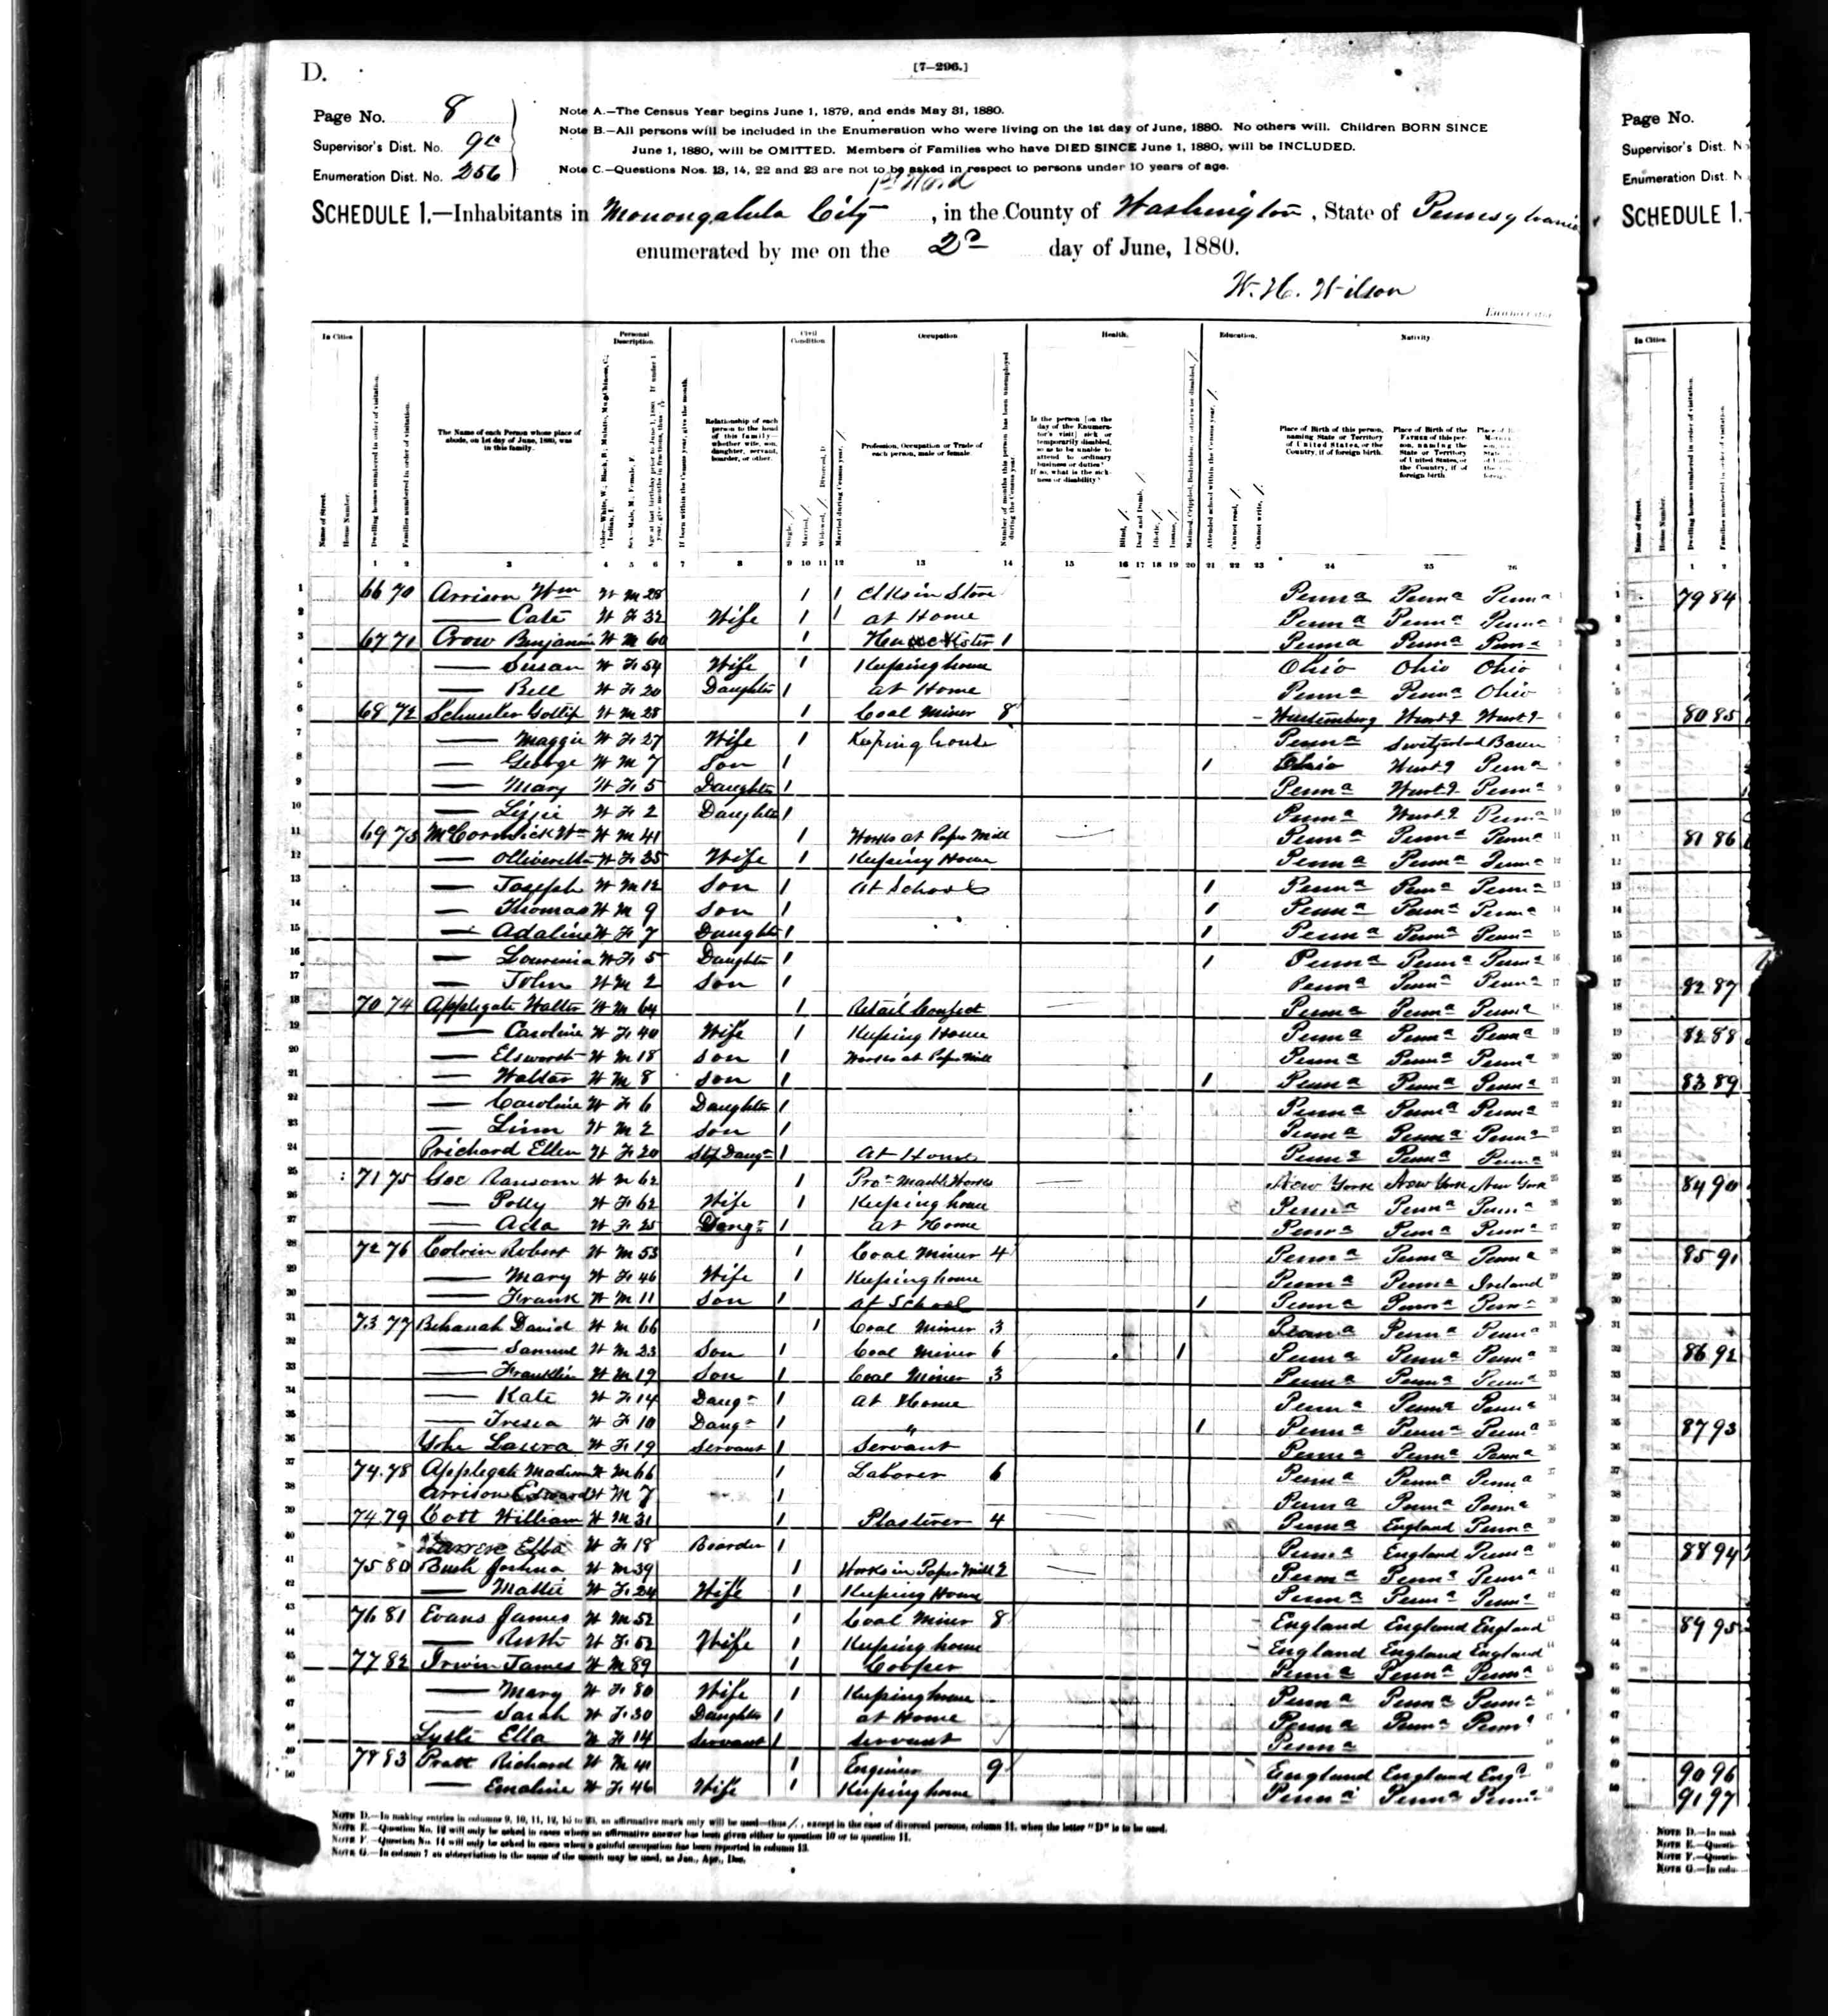 D.
[7-296.]
Page No. 8
Supervisor's Dist. No. 9
Enumeration Dist. No. 256
Note A.—The Census Year begins June 1, 1879, and ends May 31, 1880.
Note B.—All persons will be included in the Enumeration who were living on the 1st day of June, 1880. No others will. Children BORN SINCE
June 1, 1880, will be OMITTED. Members of Families who have DIED SINCE June 1, 1880, will be INCLUDED.
Note C.—Questions Nos. 13, 14, 22 and 23 are not to be asked in respect to persons under 10 years of age.
1st Ward
SCHEDULE 1.—Inhabitants in Monongahela City, in the County of Washington, State of Pennsylvania
enumerated by me on the 2d day of June, 1880.
W. H. Wilson
Enumerator
In Cities
Personal Description.
Civil Condition
Occupation
Health.
Education.
Nativity
Name of Street.
House Number.
Dwelling houses numbered in order of visitation.
Families numbered in order of visitation.
The Name of each Person whose place of abode, on 1st day of June, 1880, was in this family.
Relationship of each person to the head of this family—whether wife, son, daughter, servant, boarder, or other.
Profession, Occupation or Trade of each person, male or female.
Place of Birth of this person, naming State or Territory of United States, or the Country, if of foreign birth.
Place of Birth of the FATHER of this person, naming the State or Territory of United States, or the Country, if of foreign birth
1 2 3 4 5 6 7 8 9 10 11 12 13 14 15 16 17 18 19 20 21 22 23 24 25 26
1 66 70 Arrison Wm W M 28 1 1 Clks in Store Penna Penna Penna
2 Cate W F 32 Wife 1 1 at Home Penna Penna Penna
3 67 71 Crow Benjamin W M 60 1 1 Penna Penna Penna
4 Susan W F 54 Wife 1 Keeping home Ohio Ohio Ohio
5 Bell W F 20 Daughter 1 at Home Penna Penna Ohio
6 68 72 Gottip W M 28 1 Coal Miner 8 Wurtemberg Wurtg Wurtg
7 Maggie W F 27 Wife 1 Keeping house Penna Switzerland Baden
8 George W M 7 Son 1 1 Ohio Wurtg Penna
9 Mary W F 5 Daughter 1 Penna Wurtg Penna
10 Lizzie W F 2 Daughter 1 Penna Wurtg Penna
11 69 73 McCormick Wm W M 41 1 Works at Paper Mill Penna Penna Penna
12 W F 35 Wife 1 Keeping Home Penna Penna Penna
13 Joseph W M 12 Son 1 at School 1 Penna Penna Penna
14 Thomas W M 9 Son 1 1 Penna Penna Penna
15 Adaline W F 7 Daughter 1 1 Penna Penna Penna
16 W F 5 Daughter 1 1 Penna Penna Penna
17 John W M 2 Son 1 Penna Penna Penna
18 70 74 Applegate Walter W M 64 1 Retail Confect Penna Penna Penna
19 Caroline W F 40 Wife 1 Keeping Home Penna Penna Penna
20 Elsworth W M 18 Son 1 Works at Paper Mill Penna Penna Penna
21 Walter W M 8 Son 1 1 Penna Penna Penna
22 Caroline W F 6 Daughter 1 Penna Penna Penna
23 Linn W M 2 Son 1 Penna Penna Penna
24 Prichard Ellen W F 20 Step Daugr 1 At Home Penna Penna Penna
25 71 75 Coe Ransom W M 62 1 Pror Marble Works New York New York New York
26 Polly W F 62 Wife 1 Keeping home Penna Penna Penna
27 Ada W F 25 Daugr 1 at Home Penna Penna Penna
28 72 76 Colvin Robert W M 53 1 Coal Miner 4 Penna Penna Penna
29 Mary W F 46 Wife 1 Keeping home Penna Penna Ireland
30 Frank W M 11 Son 1 at School 1 Penna Penna Penna
31 73 77 Behanah David W M 66 1 Coal Miner 3 Penna Penna Penna
32 Samuel W M 23 Son 1 Coal Miner 6 1 Penna Penna Penna
33 Franklin W M 19 Son 1 Coal Miner 3 Penna Penna Penna
34 Kate W F 14 Daugr 1 at Home Penna Penna Penna
35 Tresea W F 10 Daugr 1 " 1 Penna Penna Penna
36 Yohe Laura W F 19 Servant 1 Servant Penna Penna Penna
37 74 78 Applegate Madison W M 66 1 Laborer 6 Penna Penna Penna
38 Arrison Edward W M 7 1 Penna Penna Penna
39 74 79 Cott William W M 31 1 Plasterer 4 Penna England Penna
40 Ella W F 18 Boarder 1 Penna England Penna
41 75 80 Bush Joshua W M 39 1 Works in Paper Mill 2 Penna Penna Penna
42 Mattie W F 24 Wife 1 Keeping Home Penna Penna Penna
43 76 81 Evans James W M 52 1 Coal Miner 8 England England England
44 Ruth W F 52 Wife 1 Keeping home England England England
45 77 82 Irwin James W M 89 1 Cooper Penna Penna Penna
46 Mary W F 80 Wife 1 Keeping home Penna Penna Penna
47 Sarah W F 30 Daughter 1 at Home Penna Penna Penna
48 Lytle Ella W F 14 Servant 1 Servant Penna
49 78 83 Pratt Richard W M 41 1 Engineer 9 England England Engd
50 Emaline W F 46 Wife 1 Keeping home Penna Penna Penna
Note D.—In making entries in columns 9, 10, 11, 12, 16 to 23, an affirmative mark only will be used—thus /, except in the case of divorced persons, column 11, when the letter "D" is to be used.
Note E.—Question No. 12 will only be asked in cases where an affirmative answer has been given either to question 10 or to question 11.
Note F.—Question No. 14 will only be asked in cases when a gainful occupation has been reported in column 13.
Note G.—In column 7 an abbreviation in the name of the month may be used, as Jan., Apr., Dec.
Page No.
Supervisor's Dist. N
Enumeration Dist. N
SCHEDULE 1.—
In Cities
79 84
80 85
81 86
82 87
82 88
83 89
84 90
85 91
86 92
87 93
88 94
89 95
90 96
91 97